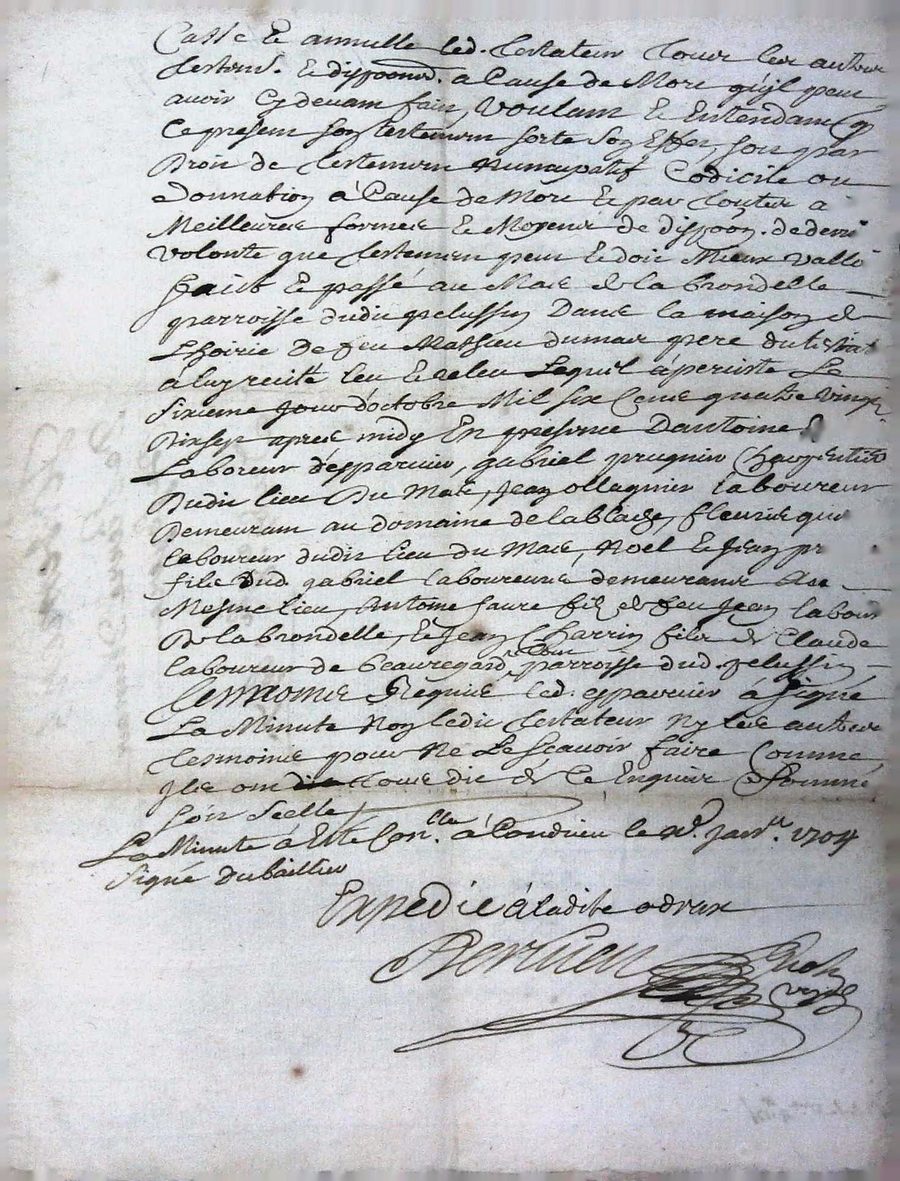 Casse et annulle led. testateur tous les autres
testemt. et disposons. a Cause de Mort qu'il peut
avoir Cy devant fait, Voulant et Entendant q
Ce present son testement sorte Son Effet, soit par
Droit de testement Nuncupatif Codicile ou
Donnation à Cause de Mort et par toutes a
Meilleures formes et Moyens de dispon. de derni
Volonté que testement peut et doit Mieux Valloi
faict et passé au Mas de la brondelle
parroisse dudit pelussin Dans la maison de
Lhoirie de feu Mathieu dumas pere du testat
à luy recitté leu et releu Lequel à persisté Le
Sixieme Jour d'octobre Mil six Cens quatre Vingt
Dixsept apres midy En presence D'antoine
Laboreur d'epparvier, gabriel prugnin Charpentier
Dudit lieu Du Mas, Jean ollagnier laboureur
Demeurant au domaine de lablache, fleurie
laboureur dudit lieu du Mas, Noel et Jean pr
fils dud. gabriel laboureurs demeurants Au
Mesme lieu, Antoine faure fils de feu Jean labour
De la brondelle, et Jean Charrin fils de Claude
laboureur de beauregard, tous parroisse dud. pelussin
tesmoins Requis led. epparvier à Signé
La Minute Non ledit testateur Ny les autres
tesmoins pour Ne Le Scavoir faire Comme
Ils ont tous dit de Ce Enquis et Sommé
Soit Scellé
La Minute à Esté Conlle. à Condrieu le xe. Janr. 1704
Signé Dubaillier
Expedié à ladite odrax